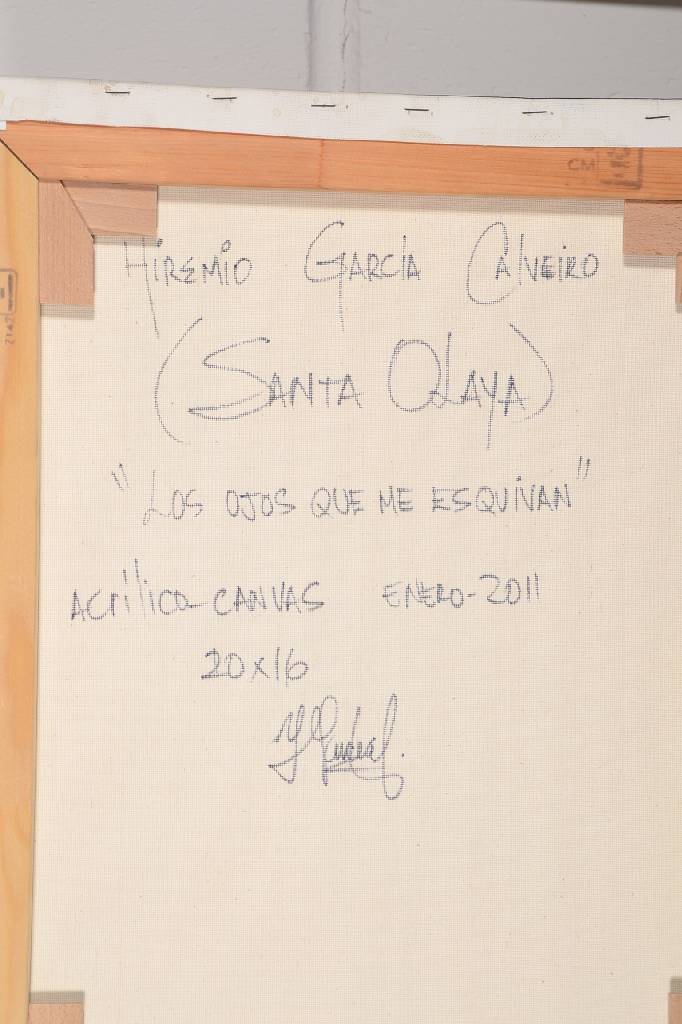 Hiremio García Calveiro
(Santa Olaya)
"Los ojos que me esquivan"
Acrílico-canvas enero-2011
20x16
CM